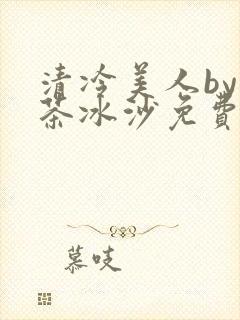 清冷美人by
茶冰沙免費
慕吱